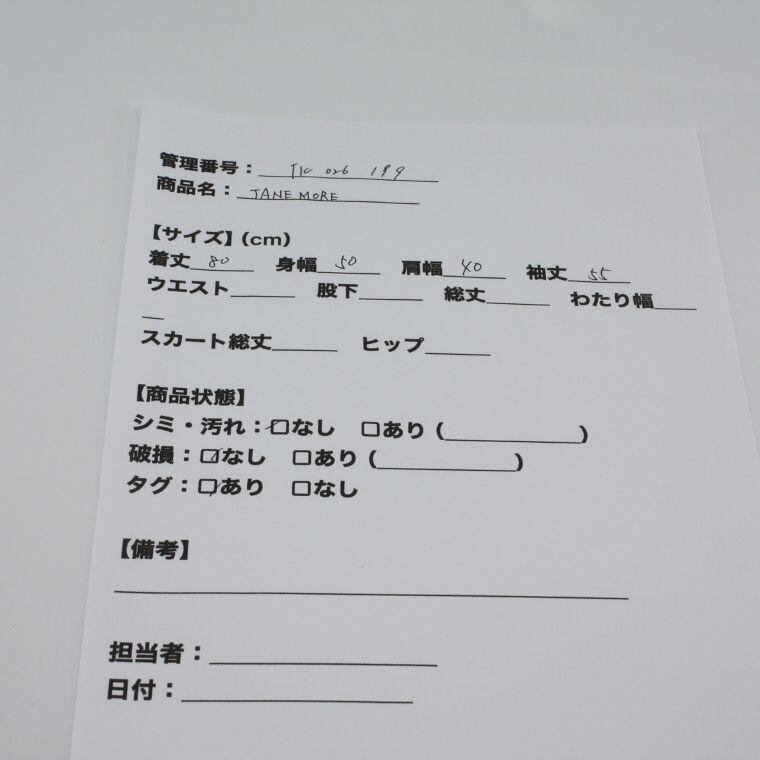 管理番号：TK 026 199
商品名：JANE MORE
【サイズ】(cm)
着丈 80 身幅 50 肩幅 40 袖丈 55
ウエスト______ 股下______ 総丈______ わたり幅____
__
スカート総丈______ ヒップ______
【商品状態】
シミ・汚れ：☑なし □あり (____________)
破損：☑なし □あり (____________)
タグ：☑あり □なし
【備考】
担当者：
日付：